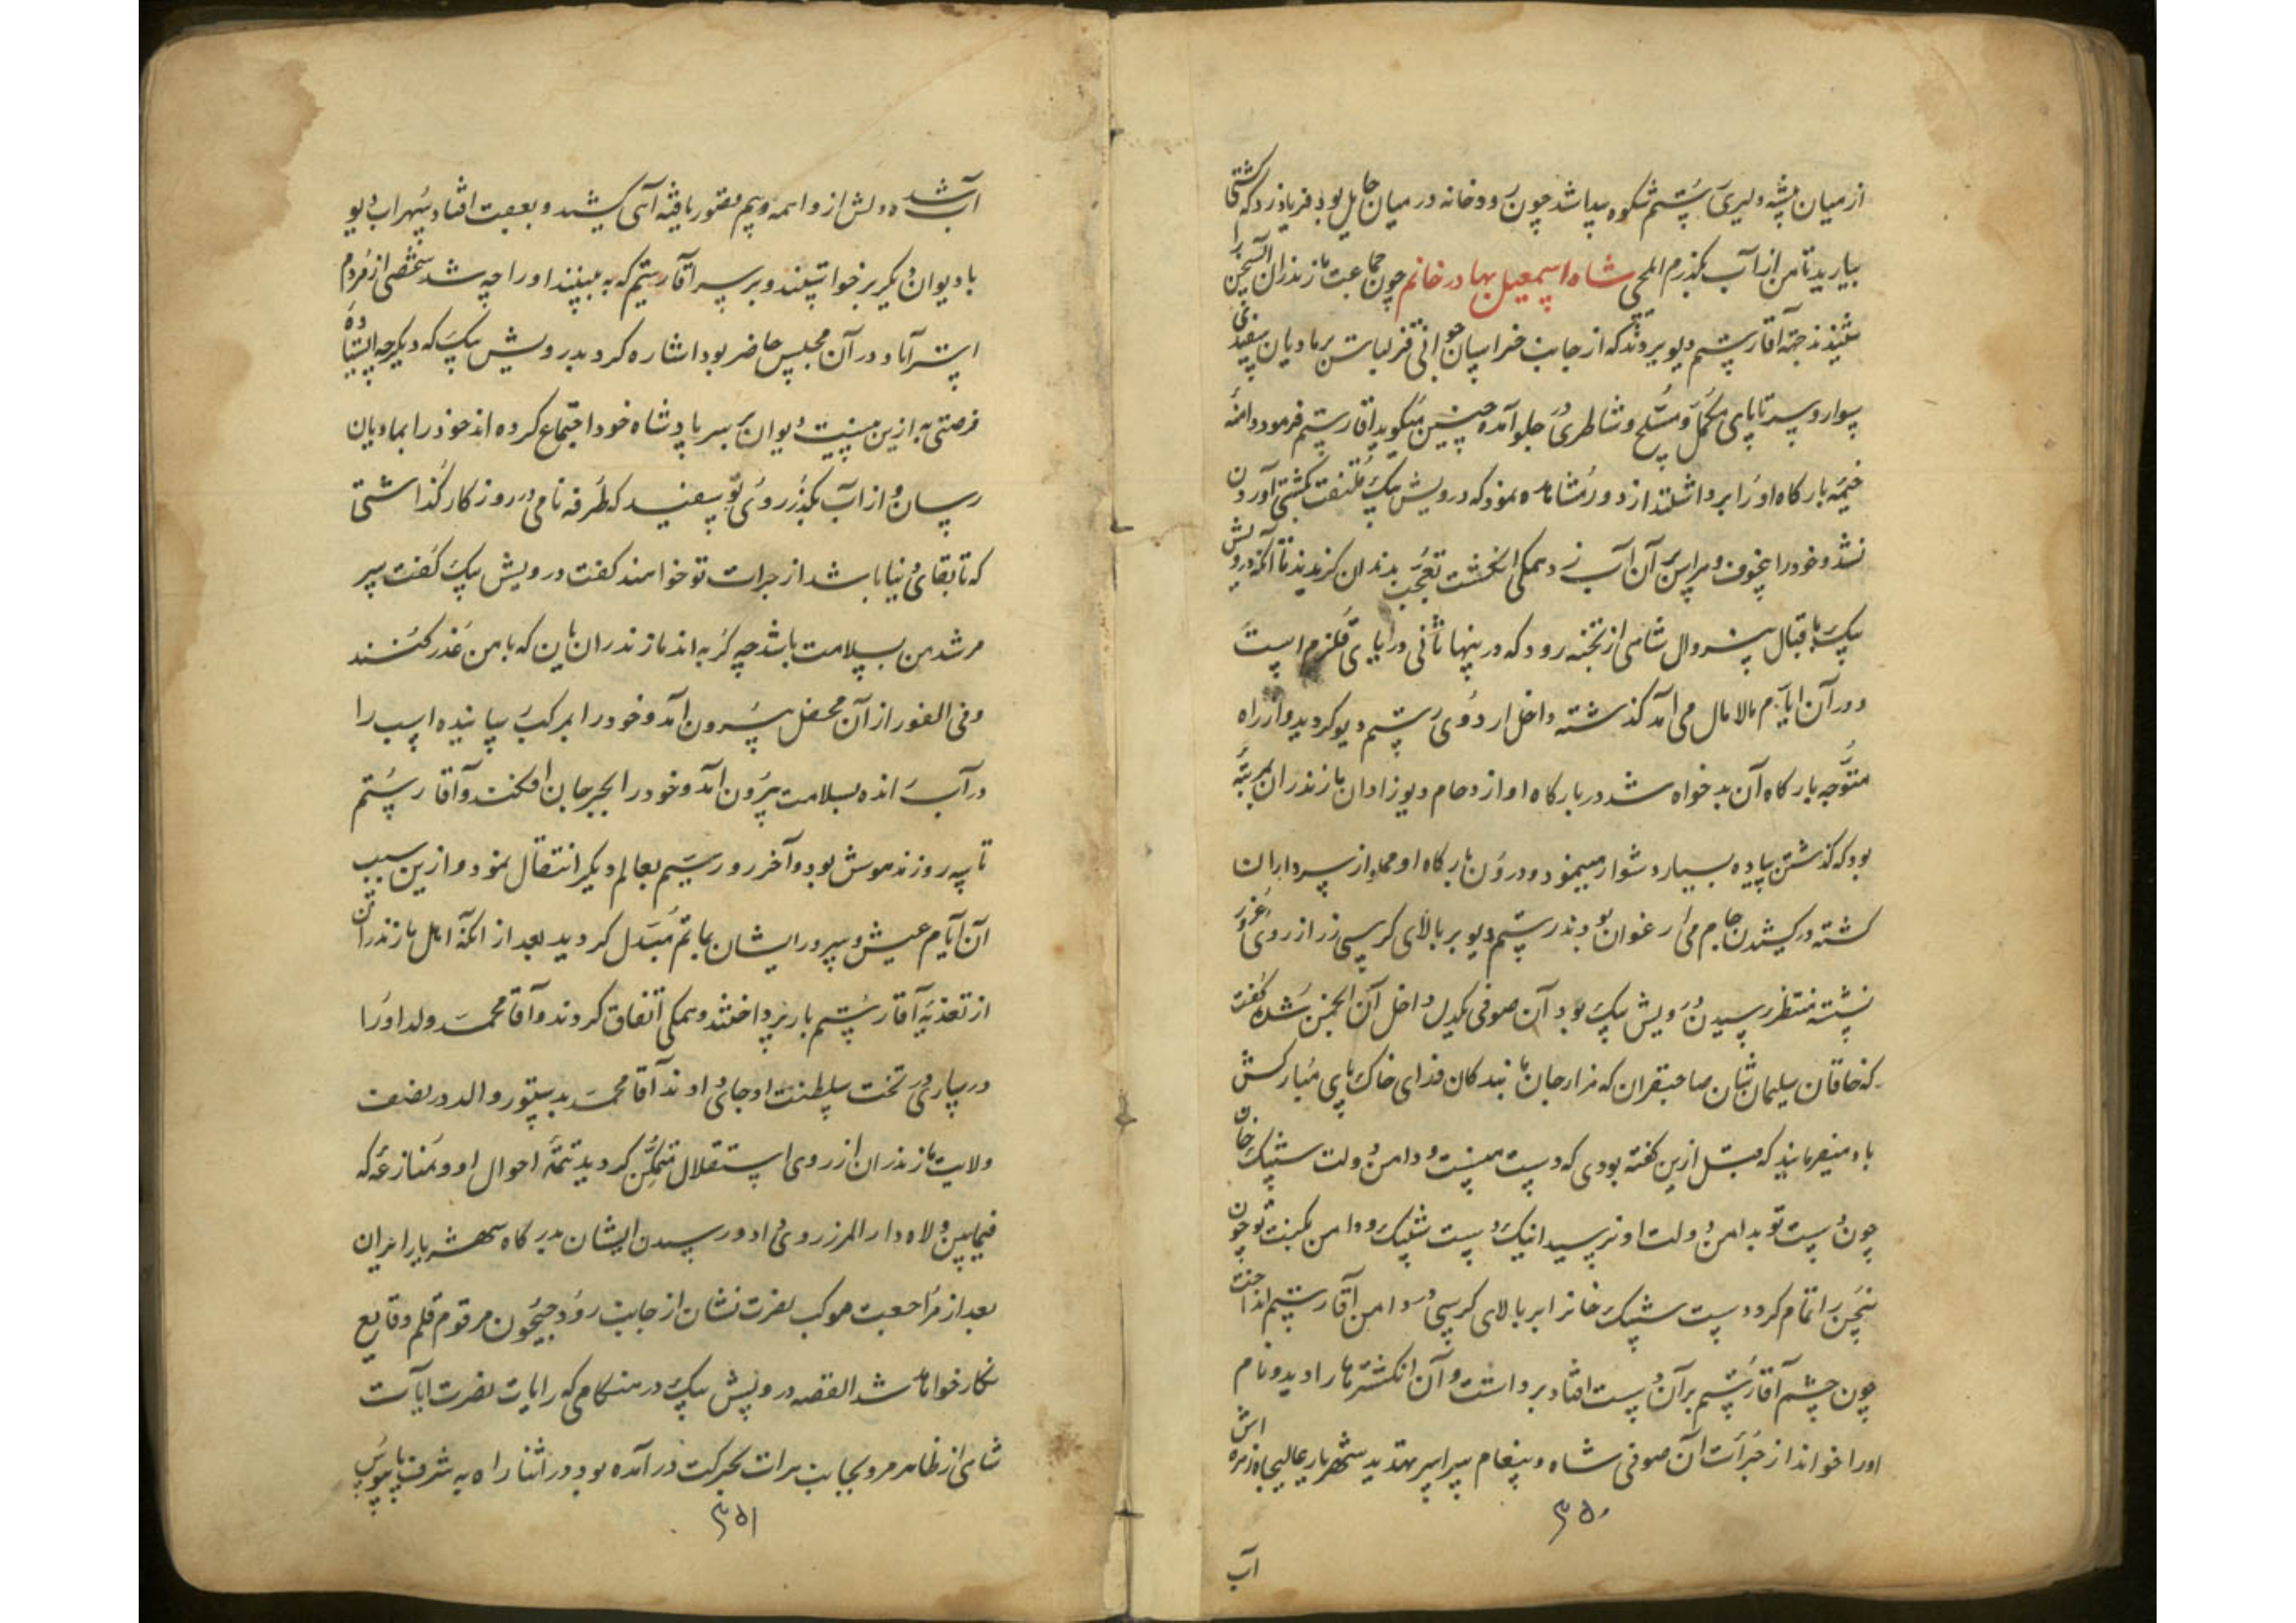 از میان بیشه دلیری رستم شکوه پیدا شد چون رودخانه در میان حایل بود فریاد زد که کشتی را
بیارید تا من از آب بگذرم ایلچی شاه اسمعیل بهادر خانم چون جماعت مازندران این سخن
شنیدند جهة آقا رستم دیو بردند که از جانب خراسان جوانی قزلباش بر مادیان سفیدی
سوار و سر تا پای مکمل و مسلح و شاطری در جلو آمده چنین میکوید آقا رستم فرمود دامنهٔ
خیمه بارکاه او را برداشتند از دور مشاهده نمود که درویش بیک ملتفت کشتی آوردن
نشد و خود را بر آن آب زد همکی انکشت تعجب بدندان کزیدند تا آنکه درویش
بیک باقبال بیزوال شاهی از تجنه رود که در پنها ثانی دریای قلزم است
و در آن ایام مالامال می آمد کذشته داخل اردوی رستم دیو کردید و از راه
متوجه بارکاه آن بدخواه شد در بارکاه او ازدحام دیوزادان مازندران بمرتبهٔ
بود که کذشتن پیاده بسیار دشوار مینمود و درون بارکاه او مملو از سرداران
کشته در کشیدن جام می ارغوان بودند رستم دیو بر بالای کرسی زر از روی غرور
نشسته منتظر رسیدن درویش بیک بود آن صوفی یکدل داخل آن انجمن شده کفت
که خاقان سلیمان شان صاحبقران که هزار جان ما بندکان فدای خاک پای مبارکش
باد میفرمایند که قبل ازین کفته بودی که دست منست و دامن دولت شیبک خان
چون دست تو بدامن دولت او نرسید اینک دست شیبک و دامن نکبت تو چون
سخن را تمام کرد دست شیبک خانرا بر بالای کرسی در دامن آقا رستم انداخت
چون چشم آقا رستم بر آن دست افتاد برداشت و آن انکشترها را دید و نام
او را خواند از جرأت آن صوفی شاه و پیغام سراسر تهدید شهریار عالیجاه زهره اش
۳۵۰
آب
آب شد دلش از واهمه و بیم قصور یافته آهی کشید و بعقب افتاد سهراب دیو
با دیوان دیکر برخواستند و بر سر آقا رستم که به بینند او را چه شد شخصی از مردم
استرآباد در آن مجلس حاضر بود اشاره کرد بدرویش بیک که دیکر چه ایستاده
فرصتی به ازین نیست دیوان بر سر پادشاه خود اجتماع کرده اند خود را بمادیان
رسان و از آب بکذر روی تو سفید که طرفه نامی در روزکار کذاشتی
که تا بقای دنیا باشد از جرات تو خواهند کفت درویش بیک کفت سر
مرشد من بسلامت باشد چه کربه اند مازندرانیان که با من غدر کنند
و فی الفور از آن محفل بیرون آمد و خود را بمرکب رسانیده اسب را
در آب رانده بسلامت بیرون آمد و خود را بجرجان افکند و آقا رستم
تا سه روز مدهوش بود و آخر روز سیم بعالم دیکر انتقال نمود و ازین سبب
آن ایام عیش و سرور ایشان بماتم مبدل کردید بعد از آنکه اهل مازندران
از تعذیهٔ آقا رستم باز پرداختند و همکی اتفاق کردند و آقا محمد ولد او را
در ساری در تخت سلطنت او جای دادند آقا محمد بدستور والد در نصف
ولایت مازندران از روی استقلال متمکن کردید تتمهٔ احوال او و منازعهٔ که
فیمابین ولاه دارالمرز روی داد و رسیدن ایشان بدرکاه شهریار ایران
بعد از مراجعت موکب نصرت نشان از جانب رود جیحون مرقوم قلم وقایع
نکار خواهد شد القصه درویش بیک در هنکامی که رایات نصرت آیات
شاهی از ظاهر مرو بجانب هرات بحرکت در آمده بود در اثنا راه به شرف پابوس
۳۵۱